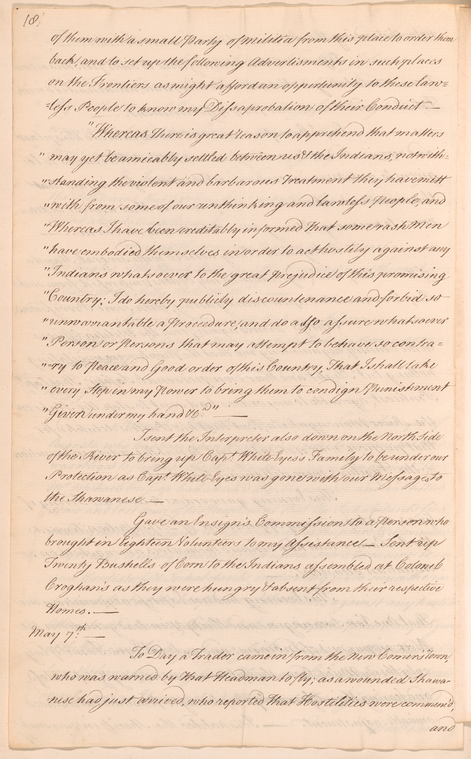 18.
of them with a small Party of Militia from this place to order them
back, and to set up the following Advertisments in such places
on the Frontiers as might afford an opportunity to these law-
-less People to know my Dissaprobation of their Conduct. —
"Whereas There is great reason to apprehend that matters
"may yet be amicably settled between us & the Indians, notwith-
"standing the violent and barbarous Treatment they have mett
"with from some of our unthinking and lawless People, and
"Whereas I have been creditably informed that some rash Men
"have embodied themselves in order to act hostily against any
"Indians whatsoever to the great Prejudice of this promising
"Country; I do hereby publicly discountenance and forbid so
"unwarrantable a Procedure, and do also assure whatsoever
"Person or Persons that may attempt to behave so contra-
"ry to Peace and Good order of this Country, That I shall take
"every Step in my Power to bring them to condign Punishment
"Given under my hand &c.d" —
I sent the Interpreter also down on the North Side
of the River to bring up Capt. White Eyes's Family to be under our
Protection as Capt. White Eyes was gone with our Messages to
the Shawanese —
Gave an Ensign's Commissions to a Person who
brought in Eighteen Volunteers to my Assistance — Sent up
Twenty Bushells of Corn to the Indians assembled at Colonel
Croghan's as they were hungry & absent from their respective
Homes. —
May 7.th —
To Day a Trader came in from the New Comers Town,
who was warned by that Headman to fly; as a wounded Shawa-
nise had just arrived, who reported that Hostilities were commenc'd,
and